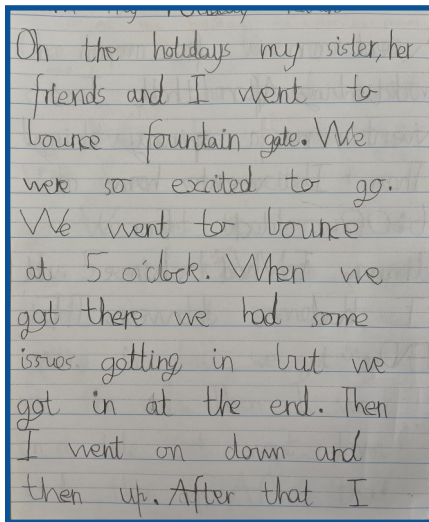 On the holidays my sister, her
friends and I went to
bounce fountain gate. We
were so excited to go.
We went to bounce
at 5 o'clock. When we
got there we had some
issues getting in but we
got in at the end. Then
I went on down and
then up. After that I